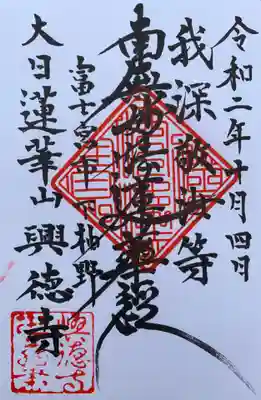 令和二年十月四日
我深敬汝等
南無妙法蓮華経
富士宮市下柚野
大日蓮華山 興徳寺